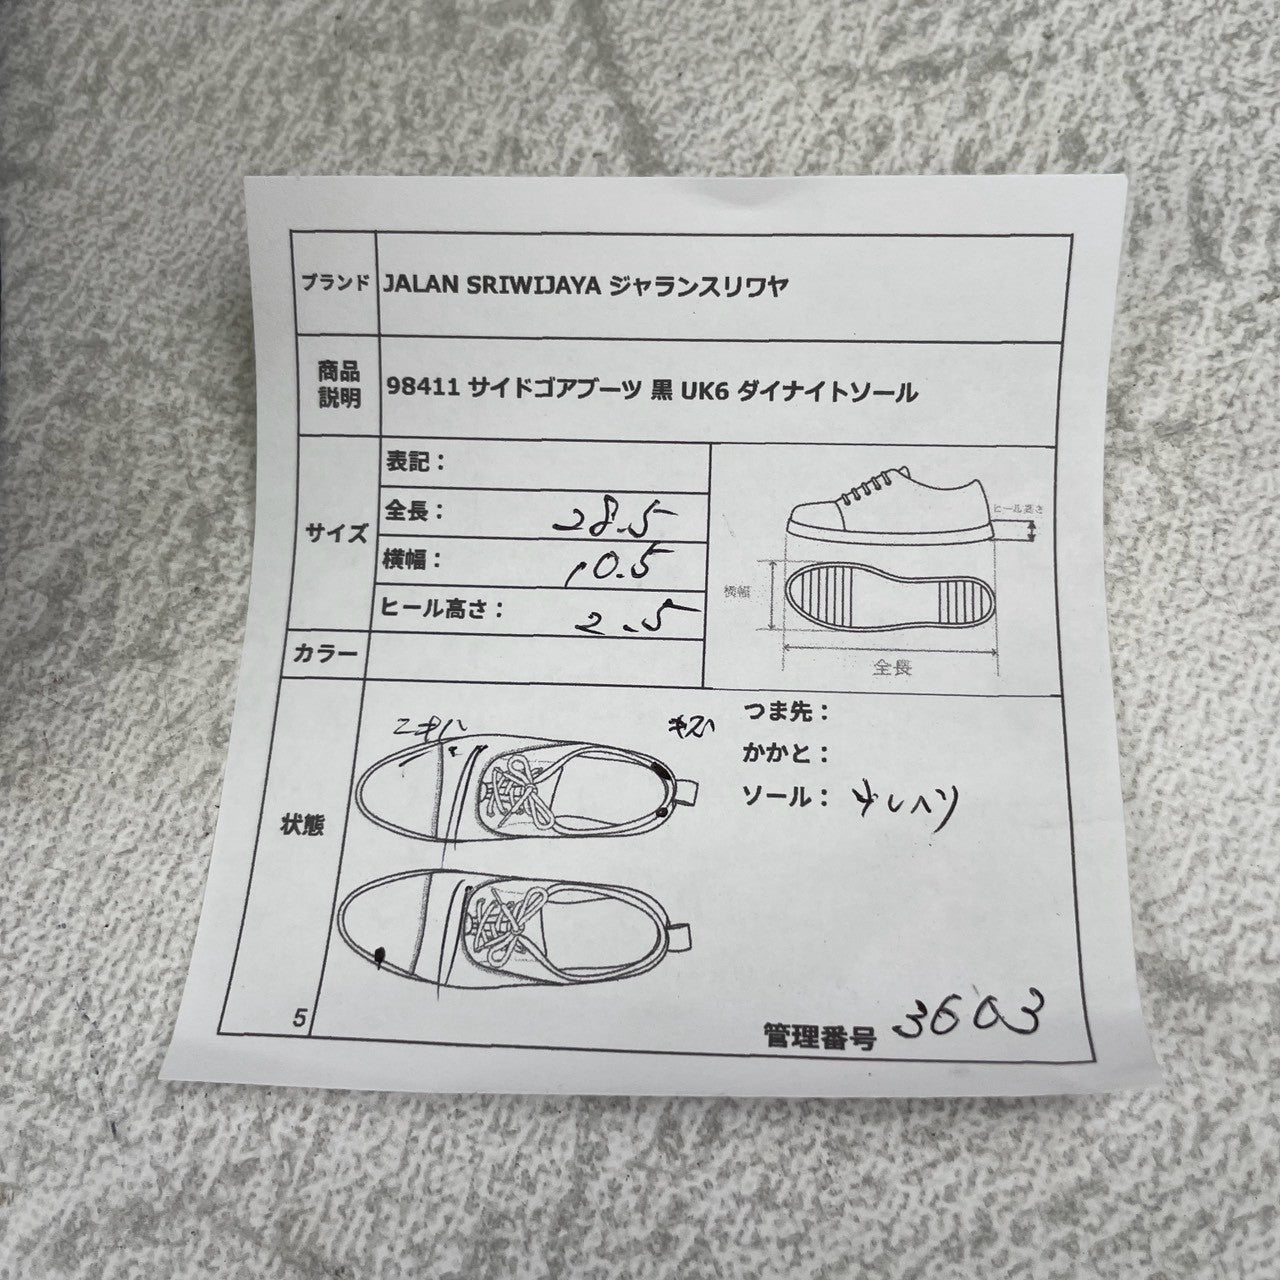 ブランド JALAN SRIWIJAYA ジャランスリワヤ
商品説明 98411 サイドゴアブーツ 黒 UK6 ダイナイトソール
サイズ
表記：
全長： 28.5
横幅： 10.5
ヒール高さ： 2.5
ヒール高さ
横幅
全長
カラー
状態
キズ
つま先：
かかと：
ソール： 少しヘリ
5
管理番号 3603